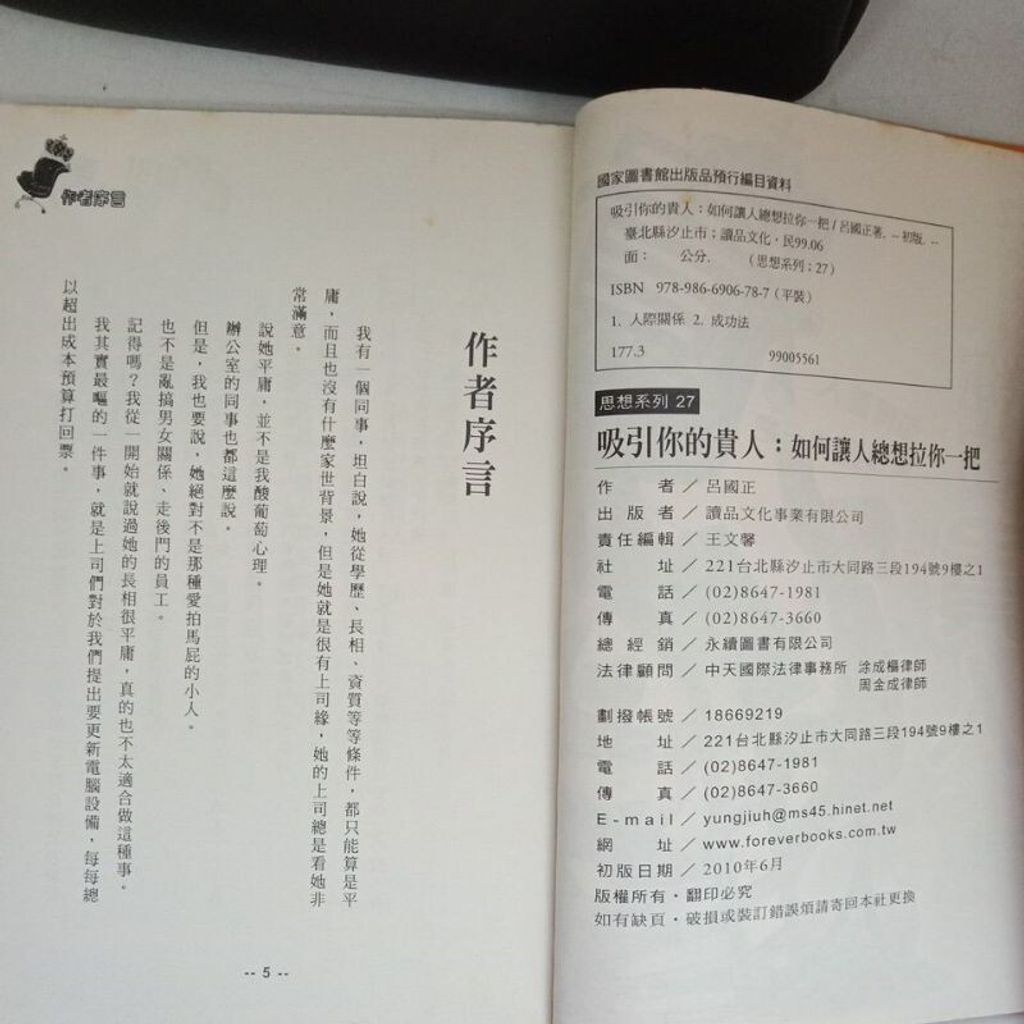 國家圖書館出版品預行編目資料
吸引你的貴人：如何讓人總想拉你一把 / 呂國正著. -- 初版. --
臺北縣汐止市；讀品文化，民99.06
面： 公分. （思想系列：27）
ISBN 978-986-6906-78-7（平裝）
1. 人際關係 2. 成功法
177.3 99005561
思想系列 27
吸引你的貴人：如何讓人總想拉你一把
作 者／呂國正
出 版 者／讀品文化事業有限公司
責任編輯／王文馨
社 址／221台北縣汐止市大同路三段194號9樓之1
電 話／(02)8647-1981
傳 真／(02)8647-3660
總 經 銷／永續圖書有限公司
法律顧問／中天國際法律事務所 涂成樞律師
周金成律師
劃撥帳號／18669219
地 址／221台北縣汐止市大同路三段194號9樓之1
電 話／(02)8647-1981
傳 真／(02)8647-3660
E-mail／yungjiuh@ms45.hinet.net
網 址／www.foreverbooks.com.tw
初版日期／2010年6月
版權所有．翻印必究
如有缺頁．破損或裝訂錯誤煩請寄回本社更換
作者序言
作者序言
我有一個同事，坦白說，她從學歷、長相、資質等等條件，都只能算是平
庸，而且也沒有什麼家世背景，但是她就是很有上司緣，她的上司總是看她非
常滿意。
說她平庸，並不是我酸葡萄心理。
辦公室的同事也都這麼說。
但是，我也要說，她絕對不是那種愛拍馬屁的小人。
也不是亂搞男女關係、走後門的員工。
記得嗎？我從一開始就說過她的長相很平庸，真的也不太適合做這種事。
我其實最嘔的一件事，就是上司們對於我們提出要更新電腦設備，每每總
以超出成本預算打回票。
-- 5 --